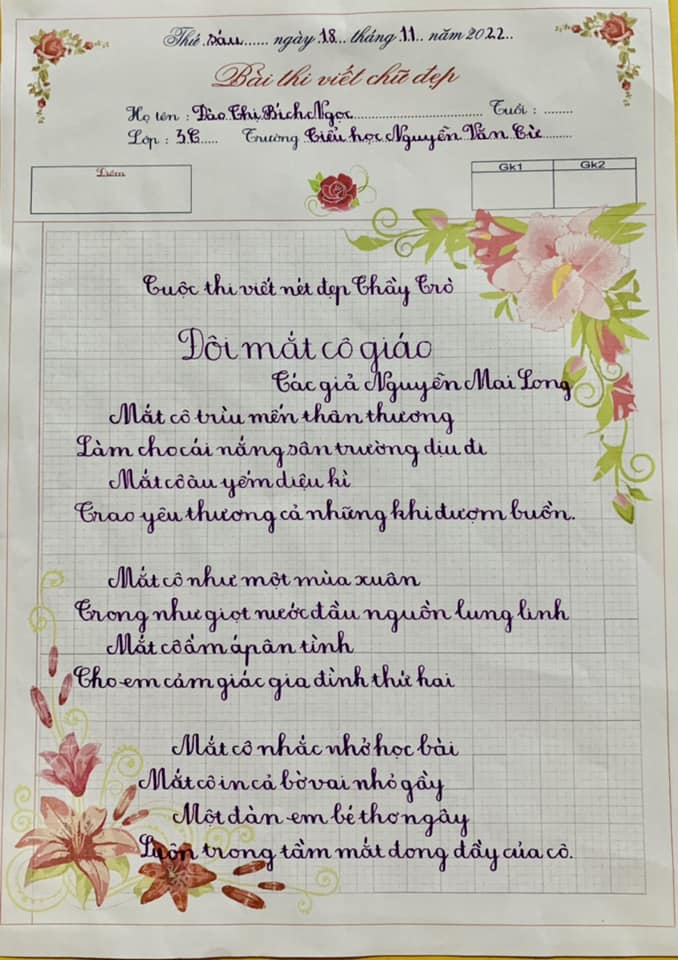 Thứ Sáu...... ngày 18... tháng 11... năm 2022..
Bài thi viết chữ đẹp
Họ tên : Đào Thị Bích Ngọc.................................. Tuổi : ........
Lớp : 3C..... Trường Tiểu học Nguyễn Văn Cừ........
Điểm
Gk1 Gk2
Cuộc thi viết nét đẹp Thầy Trò
Đôi mắt cô giáo
Tác giả Nguyễn Mai Long
Mắt cô trìu mến thân thương
Làm cho cái nắng sân trường dịu đi
Mắt cô âu yếm diệu kì
Trao yêu thương cả những khi đượm buồn.
Mắt cô như một mùa xuân
Trong như giọt nước đầu nguồn lung linh
Mắt cô ấm áp ân tình
Cho em cảm giác gia đình thứ hai
Mắt cô nhắc nhở học bài
Mắt cô in cả bờ vai nhỏ gầy
Một đàn em bé thơ ngây
Luôn trong tầm mắt dong đầy của cô.